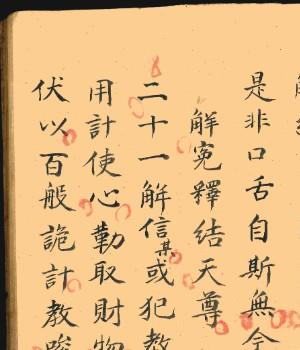 是非口舌自斯無令
解冤釋結天尊
二十一解信某或犯教
用計使心勤取財物
伏以百般詭計教唆